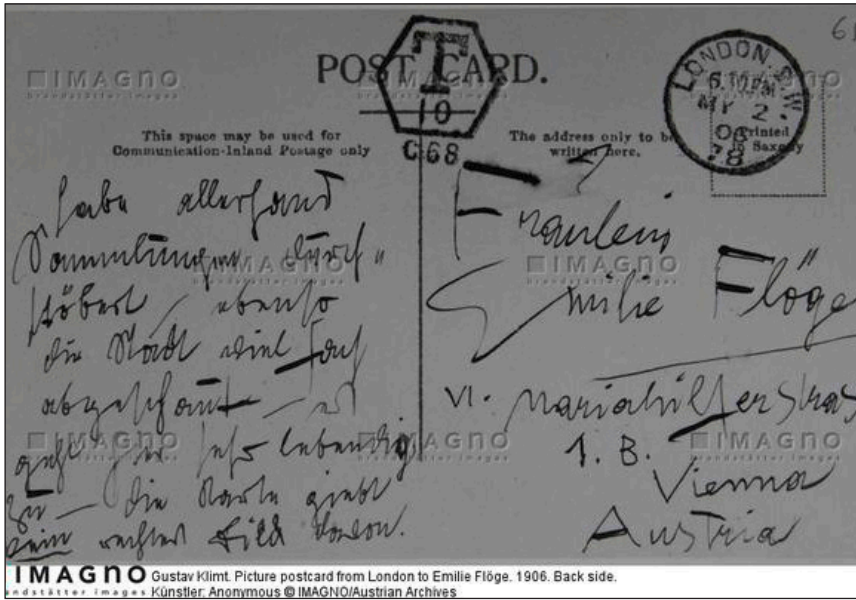 POST CARD.
T
10
C.68
LONDON.S.W.
6.10PM
MY 2
06
78
Printed
in Saxony
This space may be used for
Communication-Inland Postage only
The address only to be
written here.
habe allerhand
Sammlungen durch"
stöbert, ebenso
die Stadt viel fach
abgeschaut – es
geht hier sehr lebendig
zu – die Karte giebt
kein rechtes Bild davon.
Fräulein
Emilie Flöge
VI. Mariahilferstras
1. B.
Vienna
Austria
IMAGNO
brandstätter images
IMAGNO
brandstätter images
IMAGNO
Gustav Klimt. Picture postcard from London to Emilie Flöge. 1906. Back side.
Künstler: Anonymous © IMAGNO/Austrian Archives